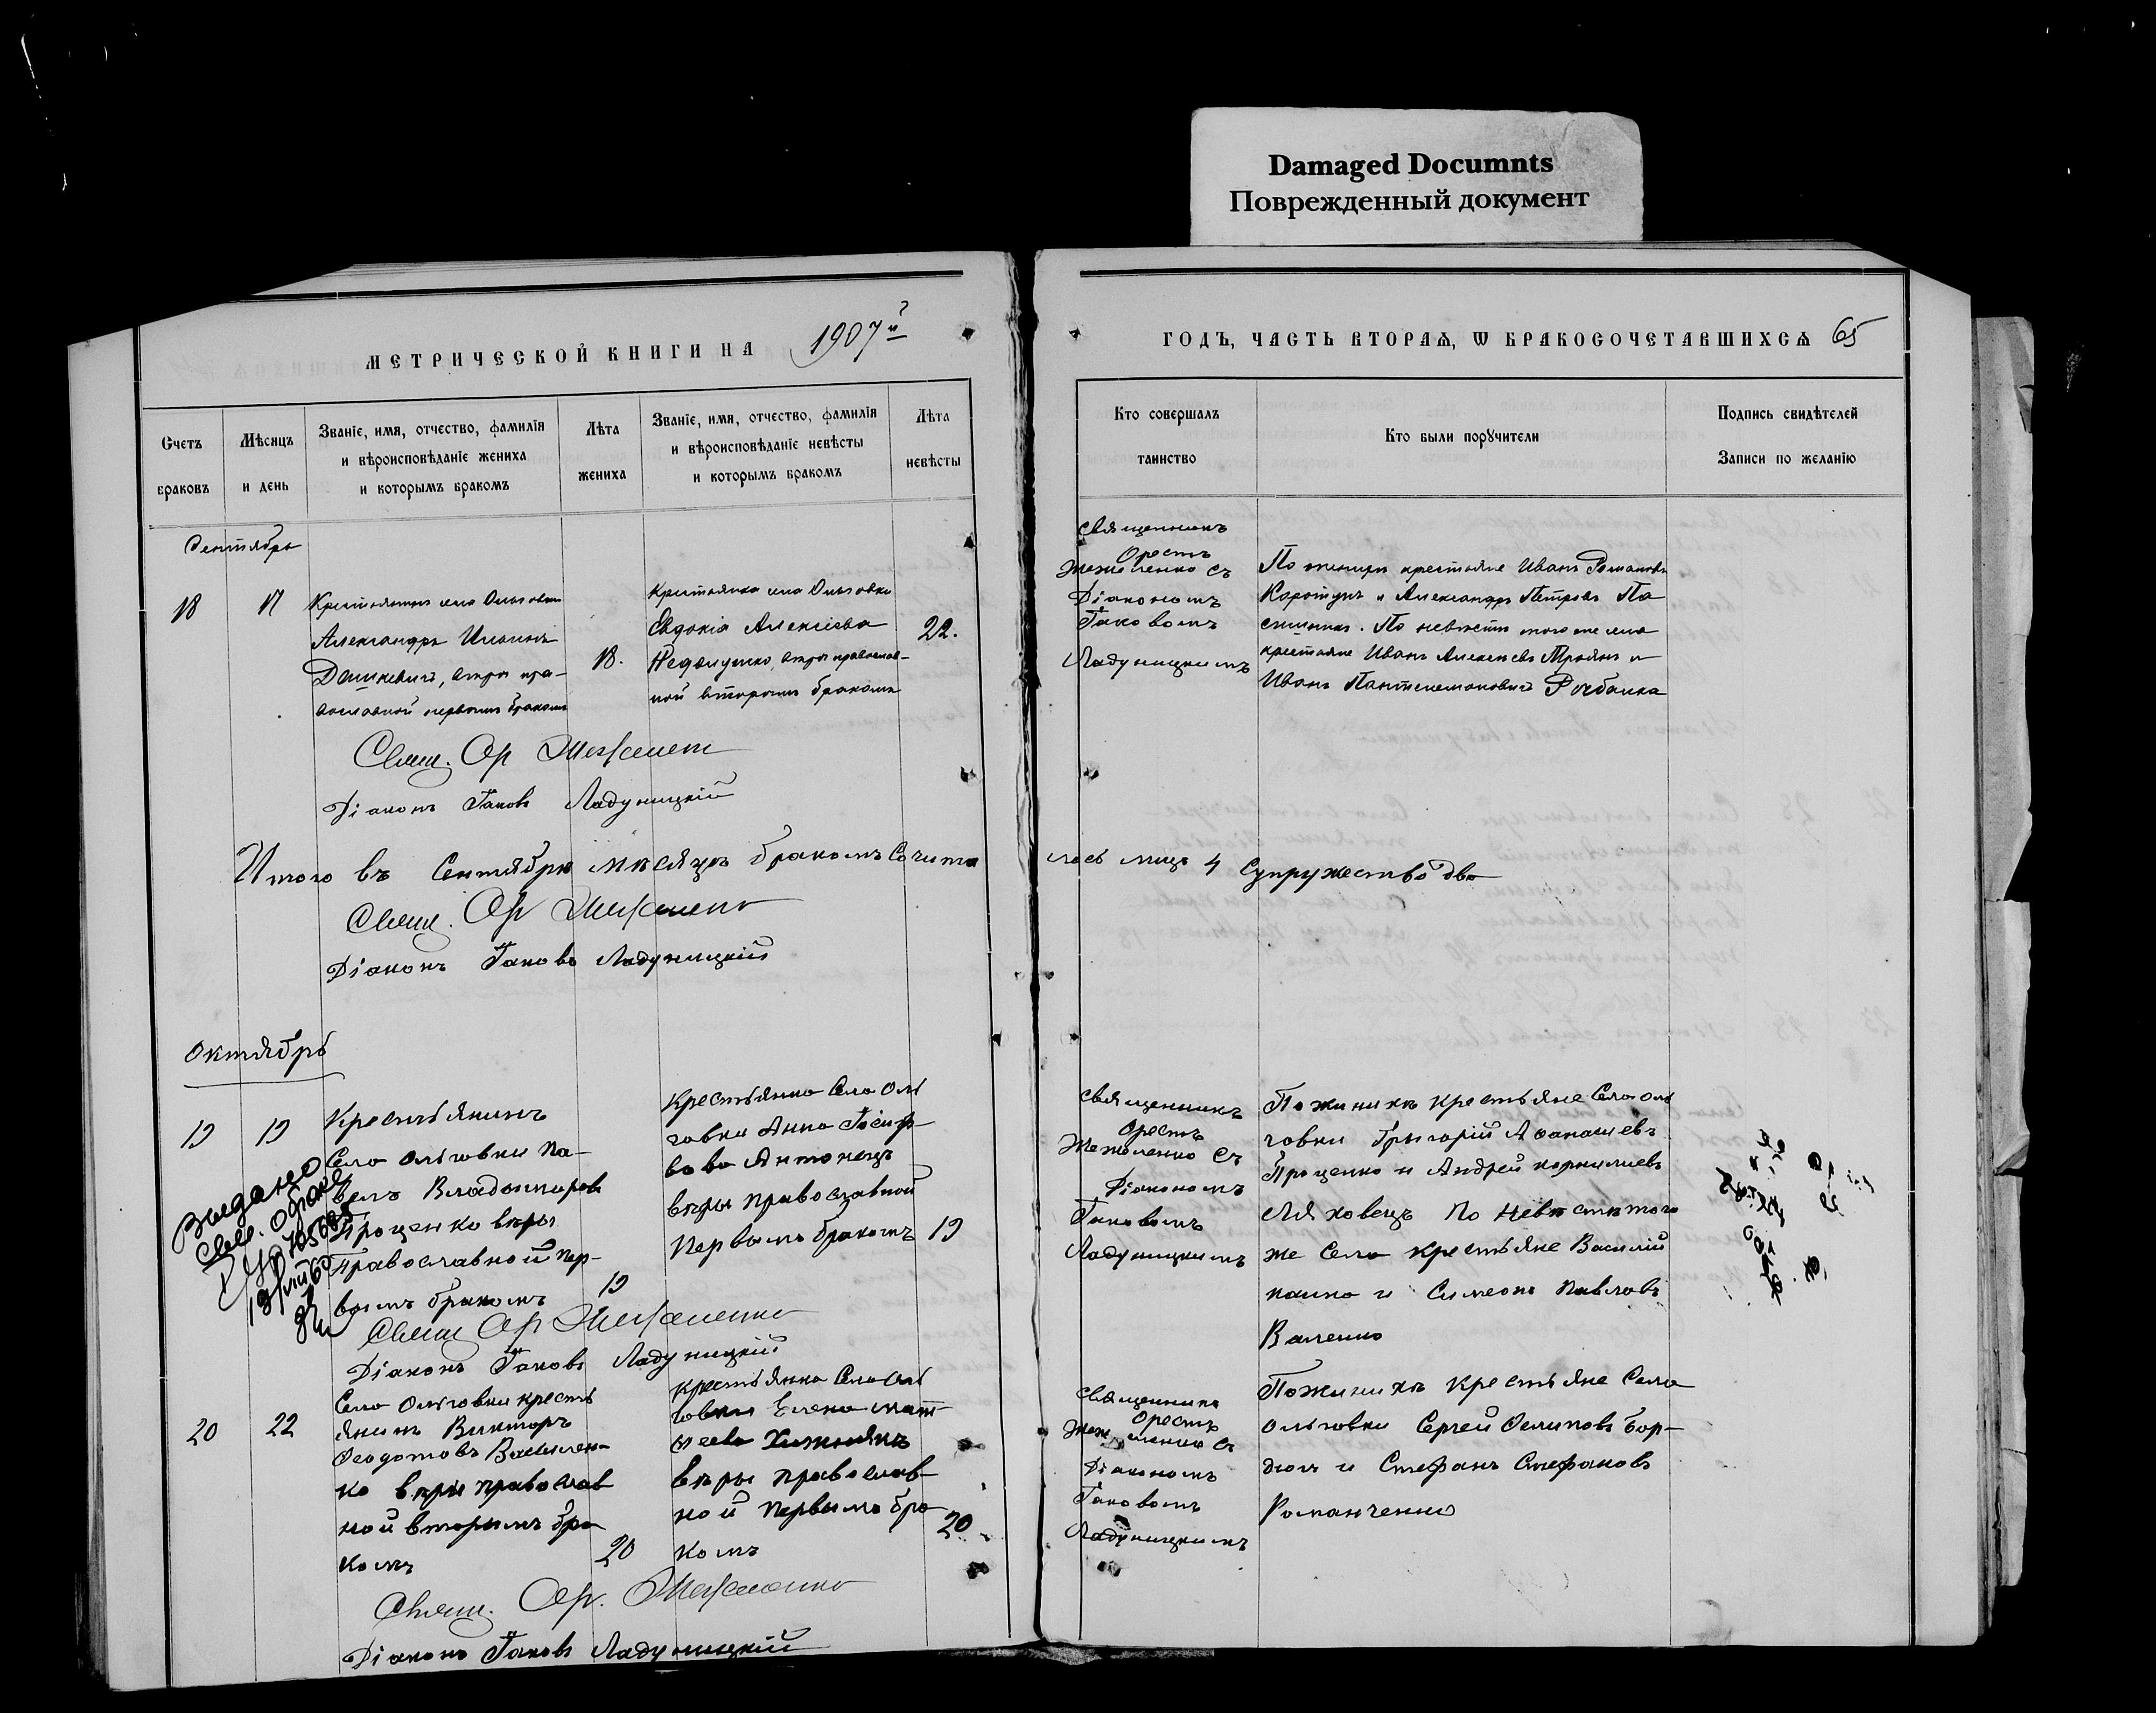 Damaged Documnts
Поврежденный документ
МЕТРИЧЕСКОЙ КНИГИ НА 1907й
ГОДЪ, ЧАСТЬ ВТОРАѦ, Ѡ БРАКОСОЧЕТАВШИХСѦ 65
Счетъ
браковъ
Мѣсяцъ
и день
Званіе, имя, отчество, фамилія
и вѣроисповѣданіе жениха
и которымъ бракомъ
Лѣта
жениха
Званіе, имя, отчество, фамилія
и вѣроисповѣданіе невѣсты
и которымъ бракомъ
Лѣта
невѣсты
Кто совершалъ
таинство
Кто были порꙋчители
Подпись свидѣтелей
Записи по желанію
Сентябрь
18
17
Крестьянинъ села Ольговки
Александръ Ильинъ
Дашкевичъ, вѣры пра-
вославной первымъ бракомъ
18.
Крестьянка села Ольговки
Евдокія Алексіева
вѣры православ-
ной вторымъ бракомъ
22.
Священникъ
Орестъ
Межоленко съ
Діакономъ
Іаковомъ
Ладуницкимъ
По женихѣ крестьяне Иванъ Романовъ
Коротунъ и Александръ Петровъ Па
По невѣстѣ того же села
крестьяне Иванъ Алексѣевъ Троянъ и
Иванъ Пантелеимоновичъ Рыбалка
Свящ. Ор
Діаконъ Іаковъ Ладуницкій
Итого въ Сентябрѣ мѣсяцѣ бракомъ Сочита
лось лицъ 4 Супружество два
Свящ. Ор
Діаконъ Іаковъ Ладуницкій
Октябрь
19
19
Крестьянинъ
Села Ольговки Па-
велъ Владимировъ
Проценко вѣры
Православной пер-
вымъ бракомъ
19
Крестьянка Села Оль
говки Анна Іосиф-
вова Антонецъ
вѣры православной
Первымъ бракомъ
19
Выдано
Свид. о браке
Священникъ
Орестъ
Межоленко Съ
Діакономъ
Іаковомъ
Ладуницкимъ
По женихѣ крестьяне Села Оль
говки Григорій Аѳанасіевъ
Проценко и Андрей Корнилиевъ
Ляховецъ По Невѣстѣ того
же Села крестьяне Василій
и Симеонъ Павловъ
Свящ Ор
Діаконъ Іаковъ Ладуницкій
20
22
Села Ольговки кресть
янинъ Викторъ
Ѳеодотовъ Василен-
ко вѣры православ
ной вторымъ бра
комъ
20
Крестьянка Села Оль
говки Елена Мат-
ѳеева Хижнякъ
вѣры православ-
ной Первымъ бра
комъ
20
Священникъ
Орестъ
Діакономъ
Іаковомъ
Ладуницкимъ
По женихѣ крестьяне Села
Ольговки Сергей Филиповъ Бор-
дюгъ и Стефанъ Стефановъ
Романченко
Свящ. Ор.
Діаконъ Іаковъ Ладуницкій